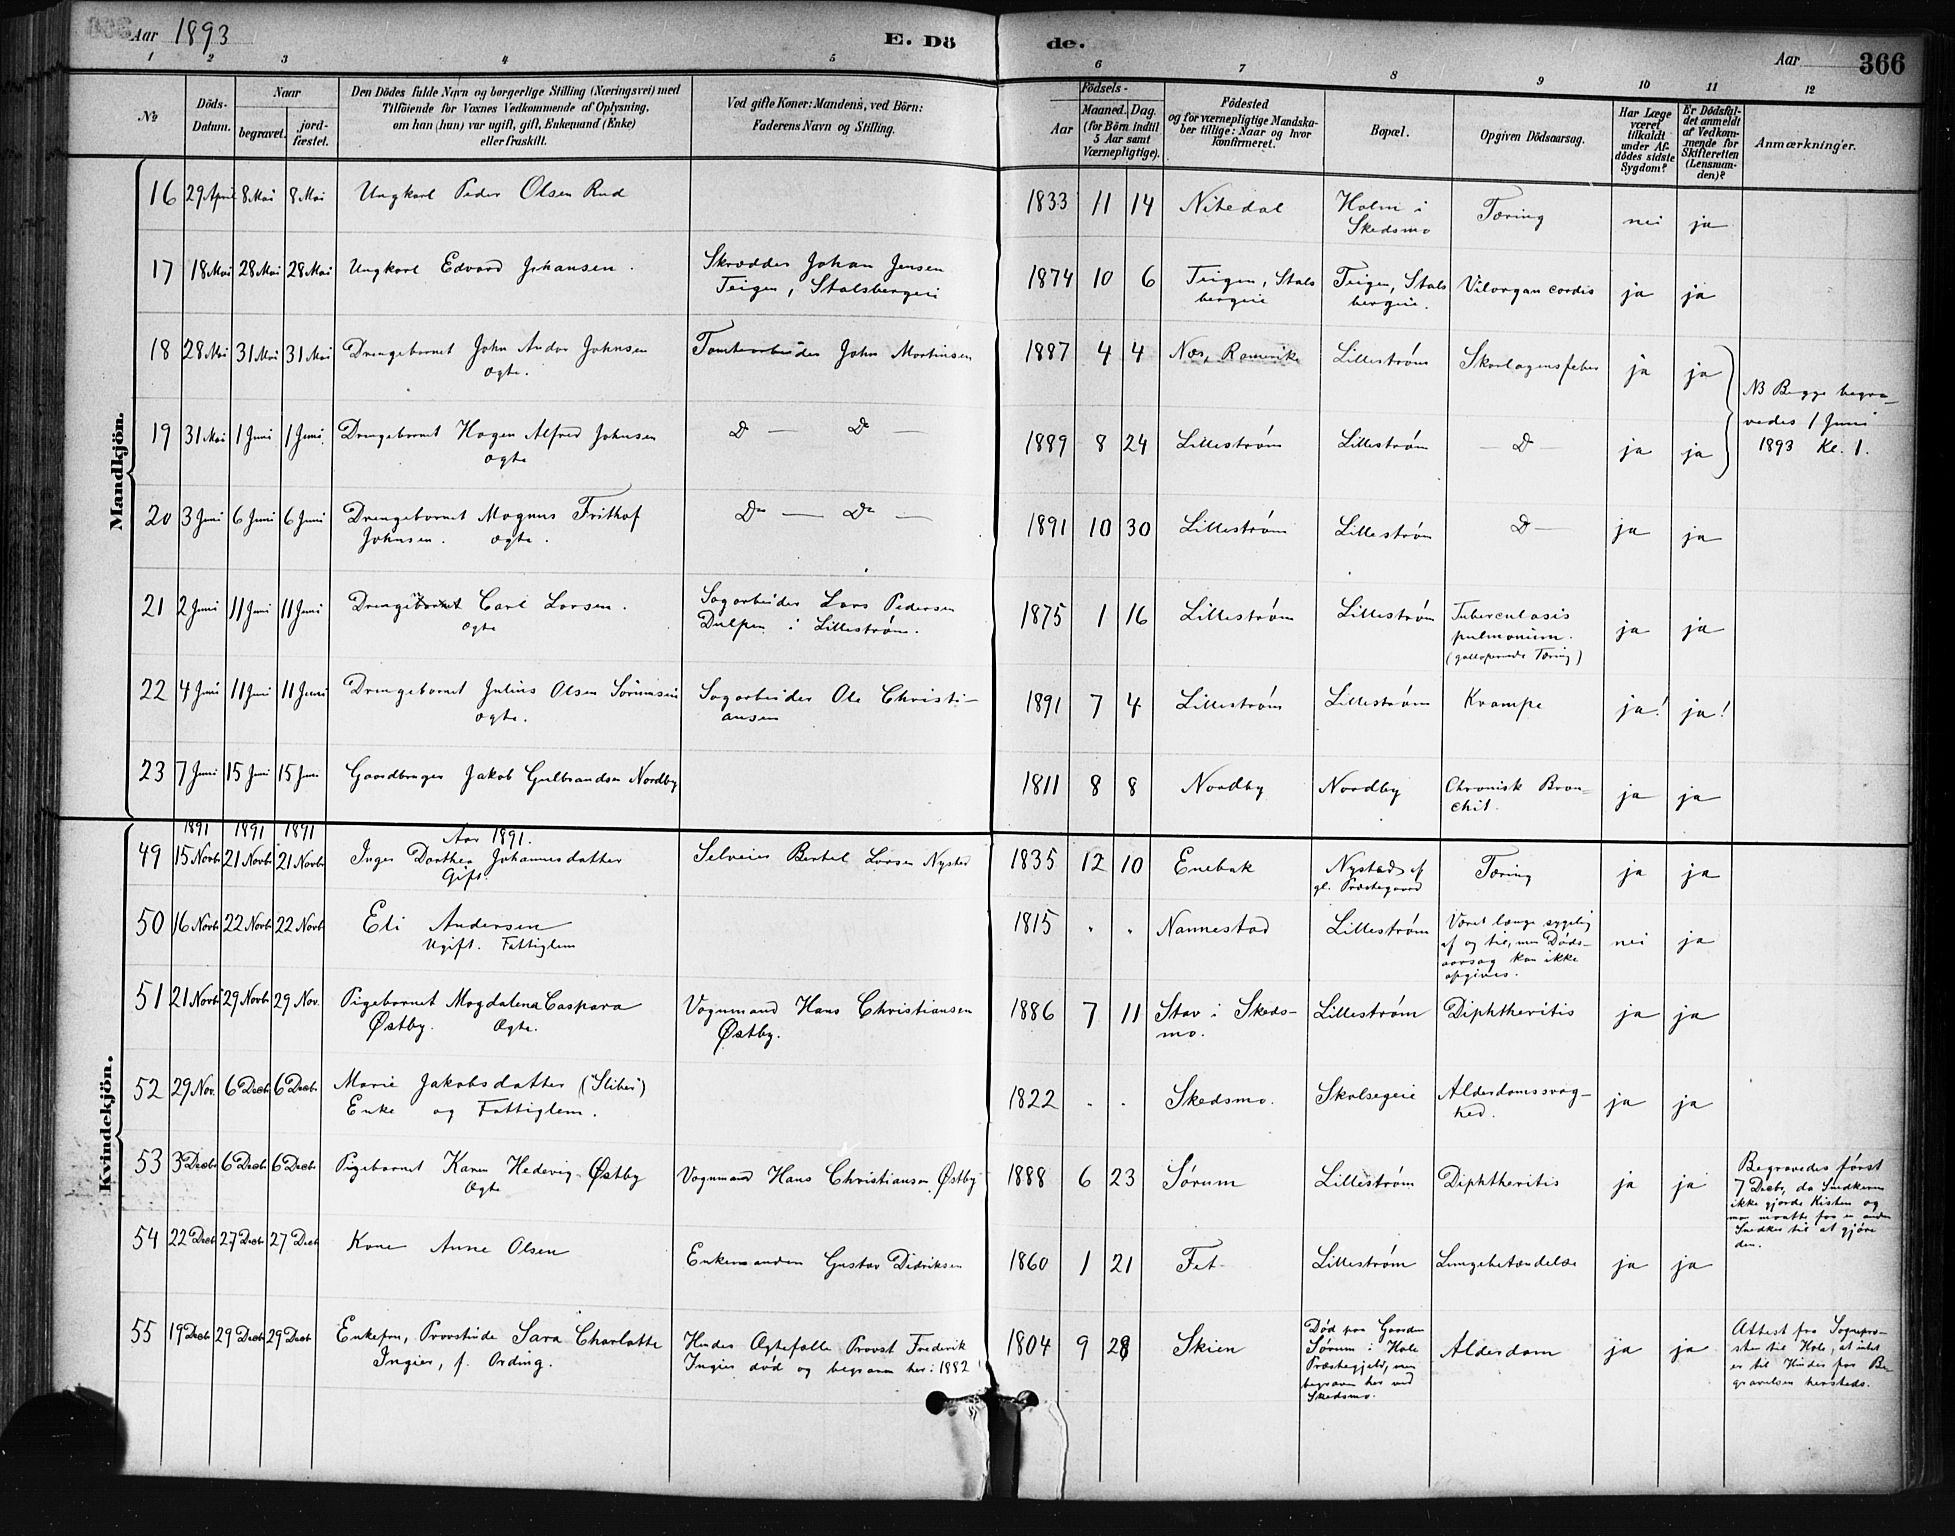 Aar 1893 E. Dö de. Aar 366
1 2 3 4 5 6 7 8 9 10 11 12
№ Döds-Datum. Naar begravet. jord-fæstet. Den Dödes fulde Navn og borgerlige Stilling (Næringsvei) med Tilföiende for Voxnes Vedkommende af Oplysning, om han (hun) var ugift, gift, Enkemand (Enke) eller fraskilt. Ved gifte Koner: Mandens, ved Börn: Faderens Navn og Stilling. Födsels- Aar Maaned. Dag. (for Börn indtil 5 Aar samt Værnepligtige). Födested og for værnepligtige Mandskaber tillige: Naar og hvor konfirmeret. Bopæl. Opgiven Dödsaarsag. Har Læge været tilkaldt under Afdödes sidste Sygdom? Er Dödsfaldet anmeldt af Vedkommende for Skifteretten (Lensmanden)? Anmærkninger.
Mandkjön.
16 29 April 8 Mai 8 Mai Ungkarl Peder Olsen Rud 1833 11 14 Nitedal Holm i Skedsmo Tæring nei ja
17 18 Mai 28 Mai 28 Mai Ungkarl Edvard Johansen. Skrædder Johan Jensen
Teigen, Stalsbergeie 1874 10 6 Teigen, Stalsbergeie Teigen, Stalsbergeie. Vil. organ cordis ja ja
18 28 Mai 31 Mai 31 Mai Drengebarnet John Andor Johnsen
ægte. Tomtearbeider John Martinsen 1887 4 4 Næs, Romerike Lillestrøm Skarlagensfeber ja ja
NB Begge begra-
vedes 1 Juni
1893 Kl. 1.
19 31 Mai 1 Juni 1 Juni Drengebarnet Hagen Alfred Johnsen
ægte D — Do 1889 8 24 Lillestrøm Lillestrøm — D — ja ja
20 3 Juni 6 Juni 6 Juni Drengebarnet Magnus Frithof
Johnsen. ægte. Do — Do — 1891 10 30 Lillestrøm Lillestrøm D — ja ja
21 2 Juni 11 Juni 11 Juni Drengebarnet Carl Larsen.
ægte Sagarbeider Lars Pedersen
Dulpen i Lillestrøm. 1875 1 16 Lillestrøm Lillestrøm Tuberculosis
pulmonium.
(galloperende Tæring) ja ja
22 4 Juni 11 Juni 11 Juni Drengebarnet Julius Olsen
ægte. Sagarbeider Ole Christi-
ansen 1891 7 4 Lillestrøm Lillestrøm Krampe ja! ja!
23 7 Juni 15 Juni 15 Juni Gaardbruger Jakob Gulbrandsen Nordby 1811 8 8 Nordby Nordby Chronisk Bron-
chit. ja ja
Kvindekjön.
1891 1891 1891 Aar 1891.
49 15 Novb 21 Novb 21 Novb Inger Dorthea Johannesdatter
Gift. Selveier Bertel Larsen Nystad 1835 12 10 Enebak Nystad af
gl. Præstegaard Tæring ja ja
50 16 Novb 22 Novb 22 Novb Eli Andersen
Ugift. Fattiglem 1815 . . Nannestad Lillestrøm Været længe sygelig
af og til, men Døds-
aarsag kan ikke
opgives. nei ja
51 21 Novb 29 Novb 29 Nov. Pigebarnet Magdalena Caspara
Østby. Ægte. Vognmand Hans Christiansen
Østby. 1886 7 11 Stav i Skeds-
mo. Lillestrøm Diphtheritis ja ja
52 29 Nov. 6 Decb 6 Decb Marie Jakobsdatter
Enke og Fattiglem. 1822 . . Skedsmo. Skolsegeie Alderdomssvag-
hed. ja ja
53 3 Decb 6 Decb 6 Decb Pigebarnet Karen Hedevig Østby
Ægte Vognmand Hans Christiansen Østby 1888 6 23 Sørum Lillestrøm Diphtheritis ja ja
Begravedes først
7 Decb, da Snedkeren
ikke gjorde Kisten og
man maatte faa en anden
Snedker til at gjøre
den.
54 22 Decb 27 Decb 27 Decb Kone Anne Olsen Enkemanden Gustav Didriksen 1860 1 21 Fet Lillestrøm Lungebetændelse ja ja
55 19 Decb 29 Decb 29 Decb Enkefru, Provstinde Sara Charlotte
Ingier, f. Ording. Hendes Ægtefælle Provst Frederik
Ingier død og begraven her i 1882 1804 9 28 Skien Død paa Gaarden
Sørum i Hole
Præstegjeld, men
begraven her ved
Skedsmo. Alderdom ja ja
Attest fra Sognepræ-
sten til Hole, at intet
er til Hinder for Be-
gravelsen hersteds.